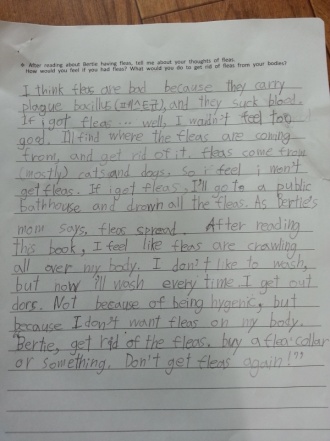 ※ After reading about Bertie having fleas, tell me about your thoughts of fleas.
How would you feel if you had fleas? What would you do to get rid of fleas from your bodies?
I think fleas are bad because they carry
plague bacillus (페스트균), and they suck blood.
If i got fleas ... well, I wadn't feel too
good. I'll find where the fleas are coming
from, and get rid of it. fleas come from
(mostly) cats and dogs. So i feel i won't
get fleas. If i get fleas, I'll go to a public
bathhouse and drown all the fleas. As Bertie's
mom says, fleas spread. After reading
this book, I feel like fleas are crawling
all over my body. I don't like to wash,
but now I'll wash every time I get out
dors. Not because of being hygenic, but
because I don't want fleas on my body.
"Bertie, get rid of the fleas, buy a flea collar
or something. Don't get fleas again!"